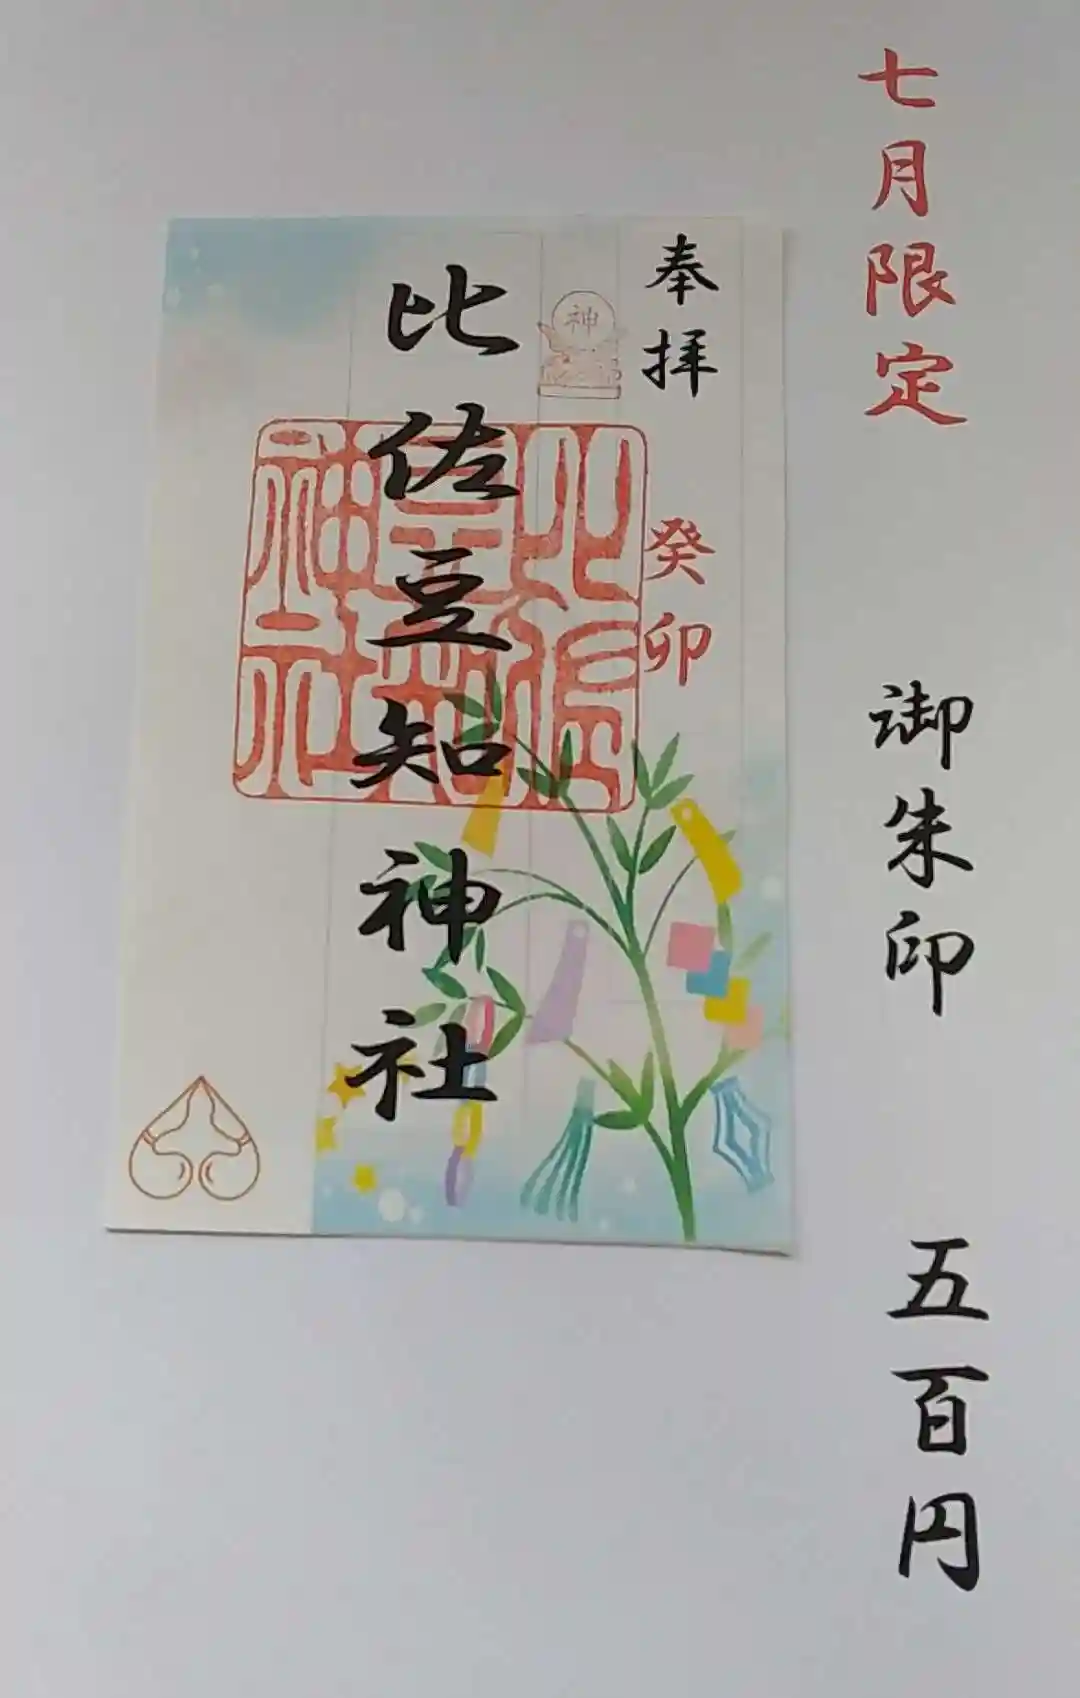 七月限定 御朱印 五百円
奉拝 癸卯
神
比佐豆知神社
比佐豆知神社